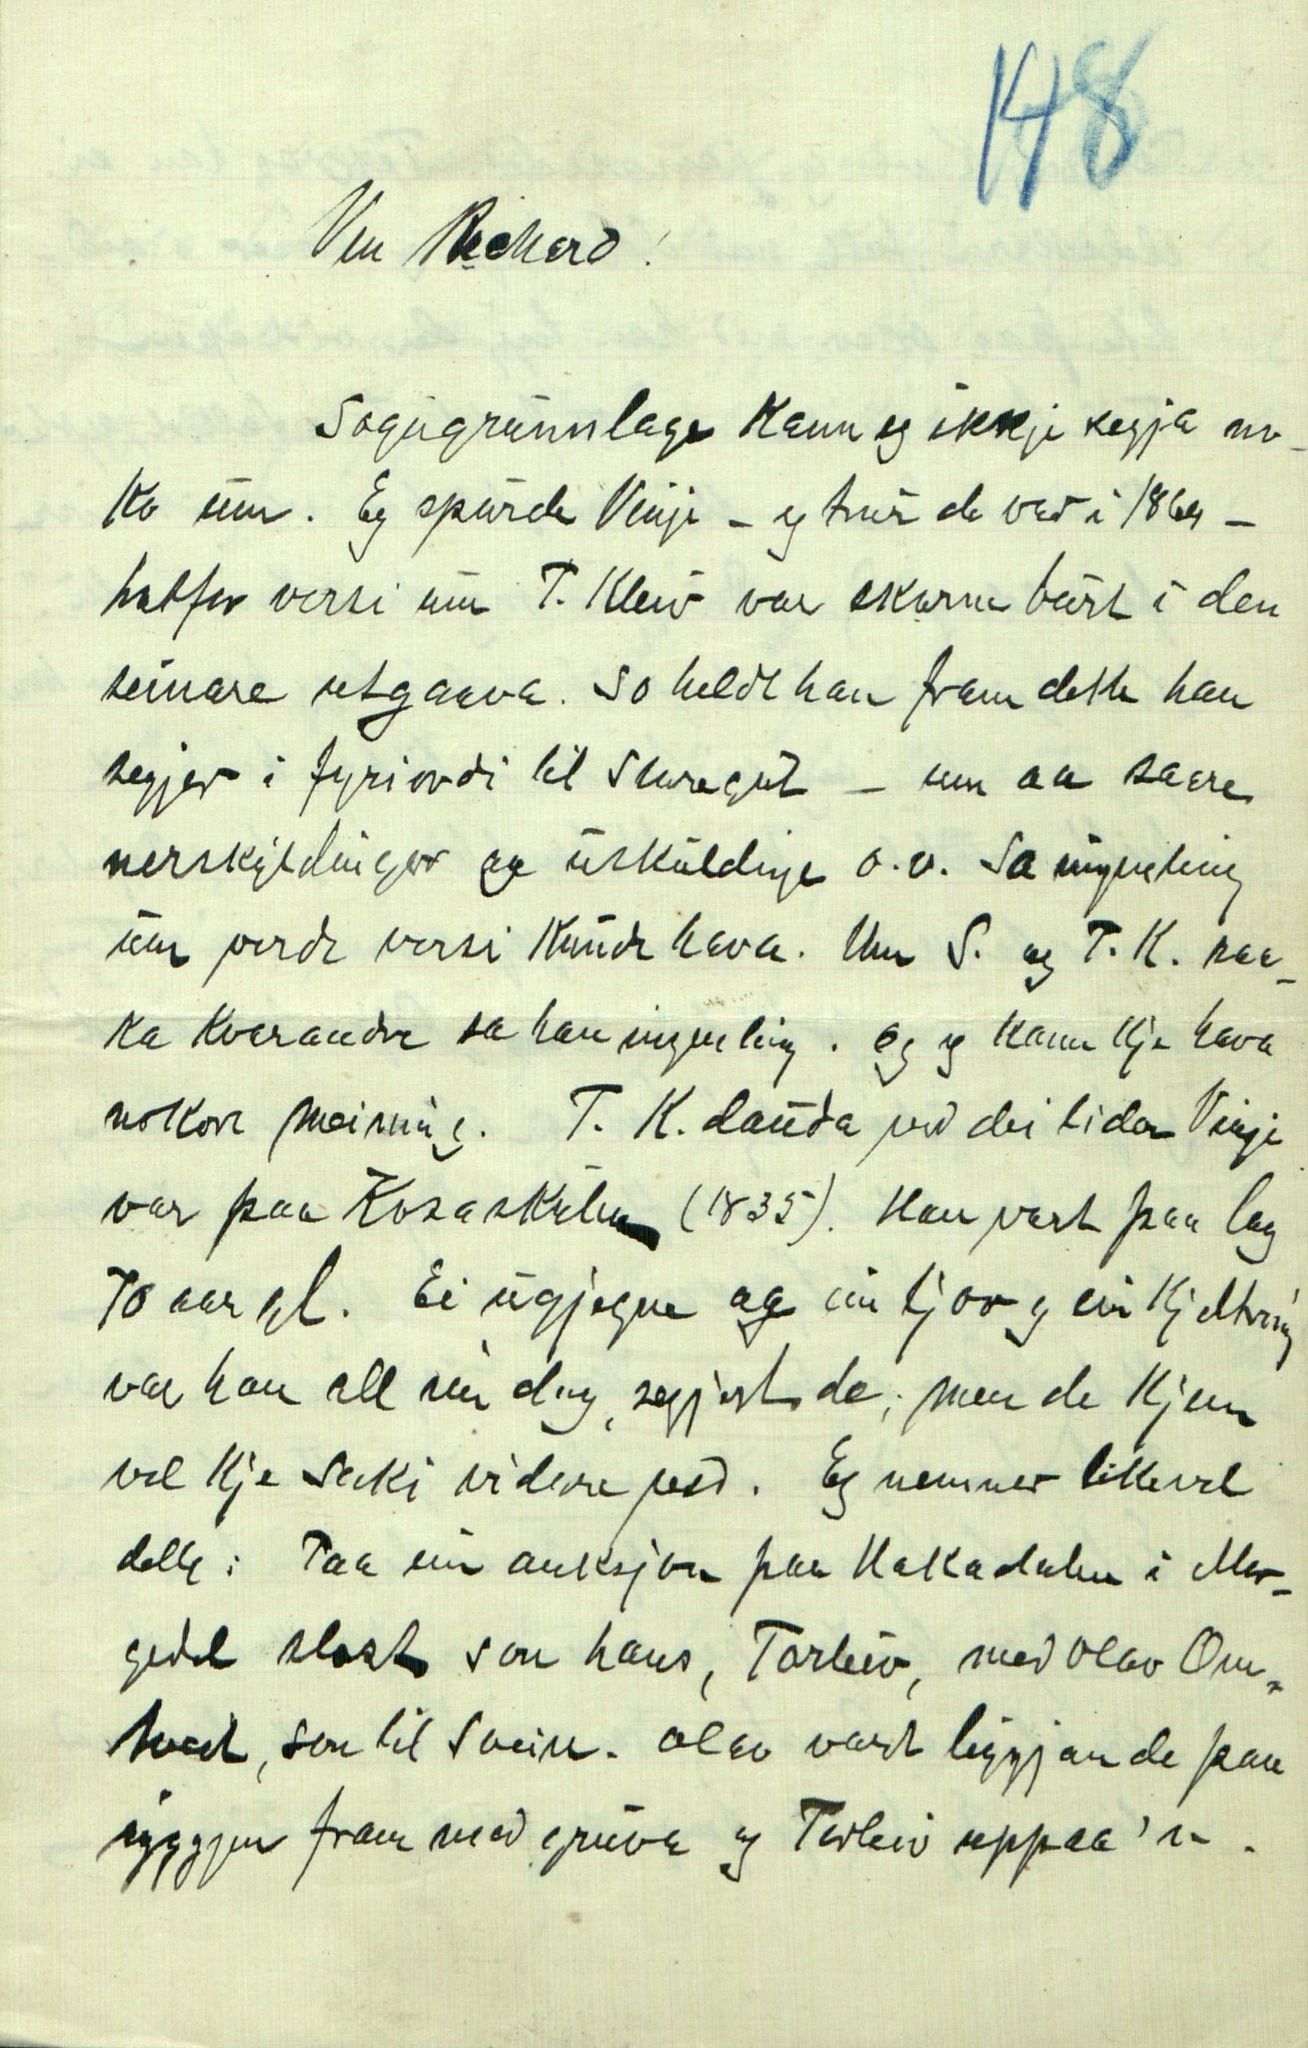 148
Ven Rickard!
Sogugrunnlage kann eg ikkje segja no-
ko um. Eg spurde Vinje - eg trur de var i 1864 -
hatfor versi um T. Kleiv var skorne burt i den
seinare utgaava. So heldt han fram dette han
segjer i fyriordi til Storegut - um aa saare
nerskyldingar og uskuldige o.v. Sa ingenting
um verde versi kunde hava. Um S. og T. K. raa-
ka kvarandre sa han ingenting. Og eg kann kje hava
nokor meining. T. K. dauda ved dei tider Vinje
var paa Kosaskulen (1835). Han vart paa lag
70 aar gl. Ei ugjegne og ein tjov og ein kjeltring
var han all sin dag, segjest de; men de kjem
vel kje saki vidare ved. Eg nemner likevel
dette: Paa ein auksjon paa Hakadalen i Mor-
gedal slost son hans, Torleiv, med Olav Om-
tveit, son til Svein. Olav vart liggjande paa
ryggjen fram med gruva og Torleiv uppaa'n.